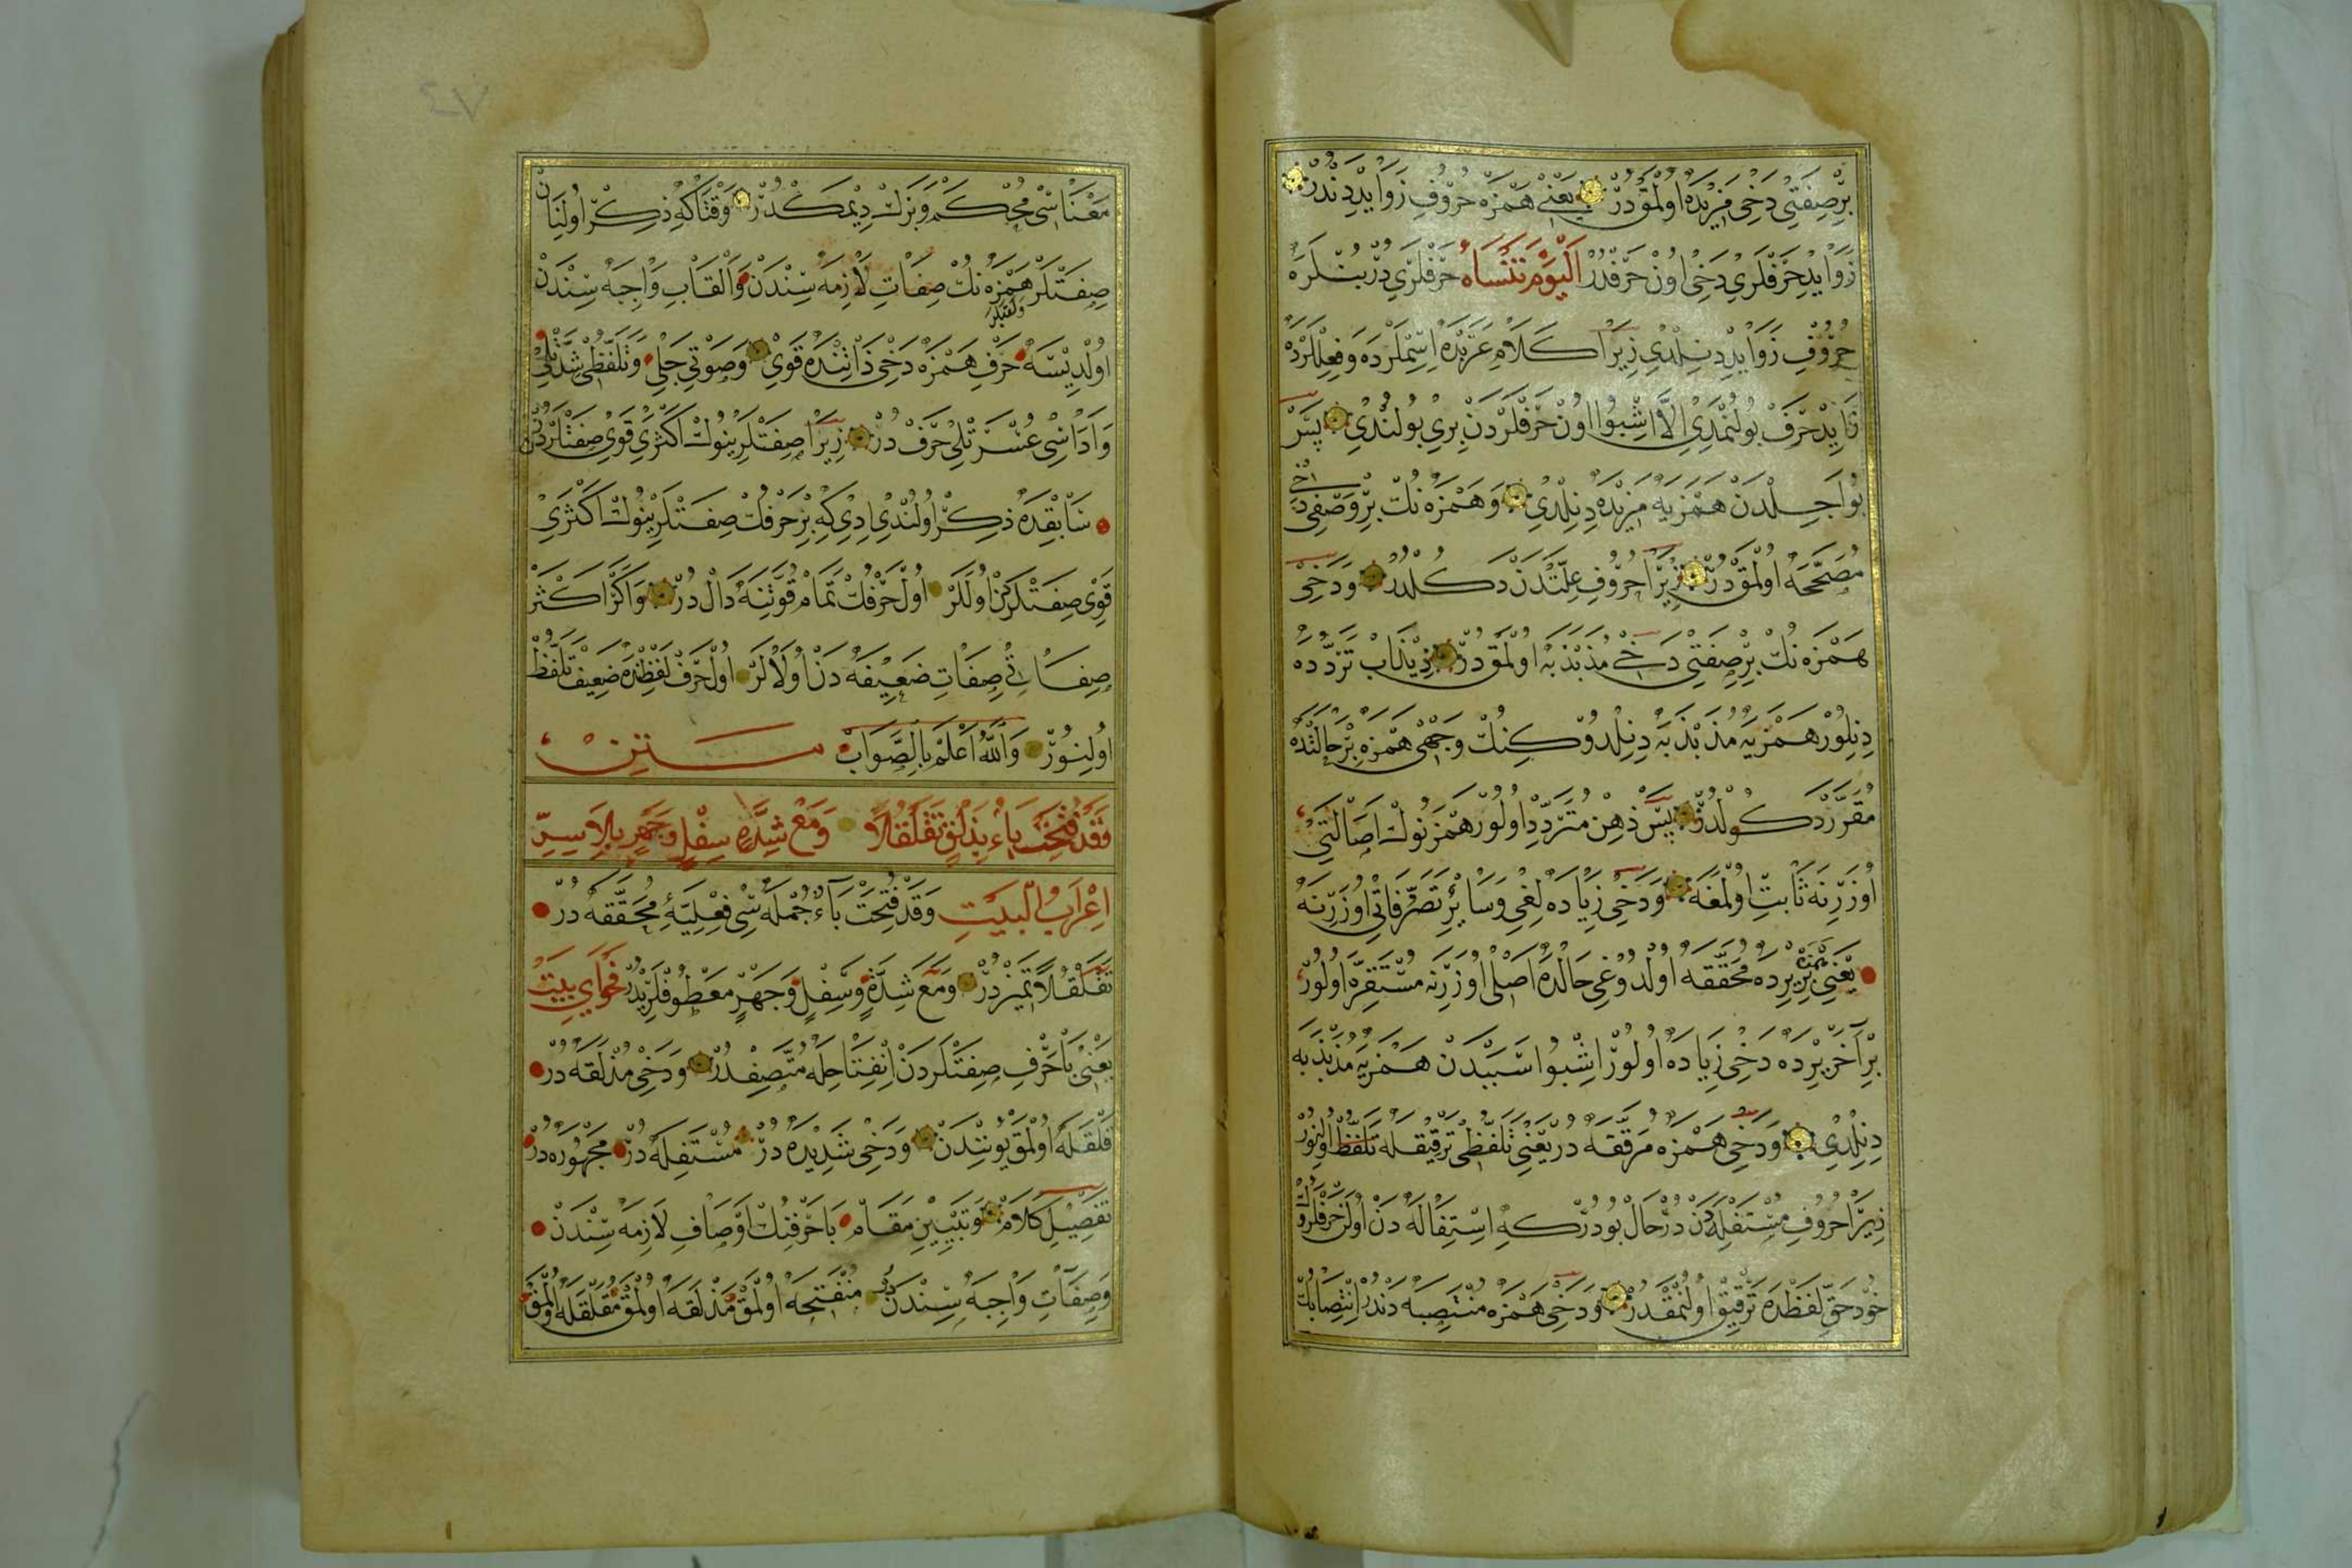 بر صفتی دخی مزیده اولمقدر یعنی همزه حروف زوایددندر
زواید حرفلری دخی اون حرفدر الیوم تنساه حرفلریدر بنلره
حروف زواید دنلدی زیرا کلام عربده اسملرده و فعللرده
زاید حرف بولنمدی الا اشبو اون حرفلردن بری بولندی پس
بو اجلدن همزیه مزیده دنلدی و همزه نك بر وصفی دخی
مصححه اولمقدر زیرا حروف علتدن دکلدر و دخی
همزه نك بر صفتی دخی مذبذبه اولمقدر ذبذاب تردده
دنلور همزیه مذبذبه دنلدوکنك وجهی همزه بر حالنده
مقرر دکولدر پس ذهن متردد اولور همزنوك اصالتی
اوزرنه ثابت اولمغه و دخی زیاده لغی و سایر تصرفاتی اوزرنه
یعنی بر یرده همزه محققه اولدوغی حالده اصلی اوزرنه مستقره اولور
بر آخر یرده دخی زیاده اولور اشبو سببدن همزیه مذبذبه
دنلدی و دخی همزه مرققه در یعنی تلفظی ترقیقله تلفظ اولنور
زیرا حروف مستفله دندر حال بودرکه استفاله دن اولن حرفلروك
خود حق لفظده ترقیق اولنمقدر و دخی همزه منتصبه دندر انتصابك
معناسی محکم و بزك دیمکدر وقتاکه ذکر اولنان
صفتلر همزه نك صفات لازمه سندن و القاب واجبه سندن
اولدیسه حرف همزه دخی ذاتنده قوی و صوتی جلی و تلفظی شدتلی
و اداسی عسرتلی حرفدر زیرا صفتلرینوك اکثری قوی صفتلردندر
سابقده ذکر اولندی ایدی که بر حرفك صفتلرینوك اکثری
قوی صفتلردن اوللر اول حرفك تمام قوتنه دال در و اکر اکثر
صفاتی صفات ضعیفه دن اولالر اول حرف لفظده ضعیف تلفظ
اولنور والله اعلم بالصواب متن
وقد فتحت باء بذلق تقلقلا ومع شدة سفل وجهر بلا سر
اعراب البیت وقد فتحت باء جمله سی فعلیۀ محققه در
تقلقلا تمیزدر و مع شدة و سفل و جهر معطوفلریدر فحوای بیت
یعنی با حرف صفتلردن انفتاحله متصفدر و دخی مذلقه در
قلقله اولمق یوسندن و دخی شدیده در مستفله در مجهوره در
تفصیل کلام و تبیین مقام با حرفنك اوصاف لازمه سندن
و صفات واجبه سندندر منفتحه اولمق مذلقه اولمق مقلقله اولمق